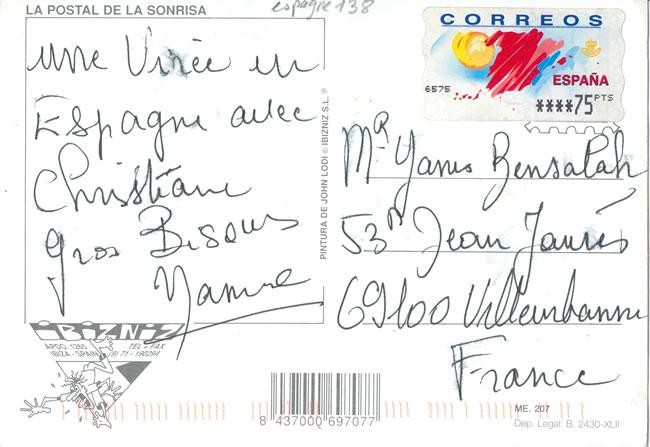 LA POSTAL DE LA SONRISA
espagne 138
une Virée en
Espagne avec
Christiane
gros Bisous
PINTURA DE JOHN LODI © IBIZNIZ S.L.®
CORREOS
ESPAÑA
6575
****75 PTS
Mr Yanis Bensalah
53 r Jean Jaurès
69100 Villeurbanne
France
iBiZNiZ
APDO. 1265 TEL + FAX
IBIZA - SPAIN (9) 71 - 190294
8 437000 697077
ME. 207
Dep. Legal: B. 2430-XLII